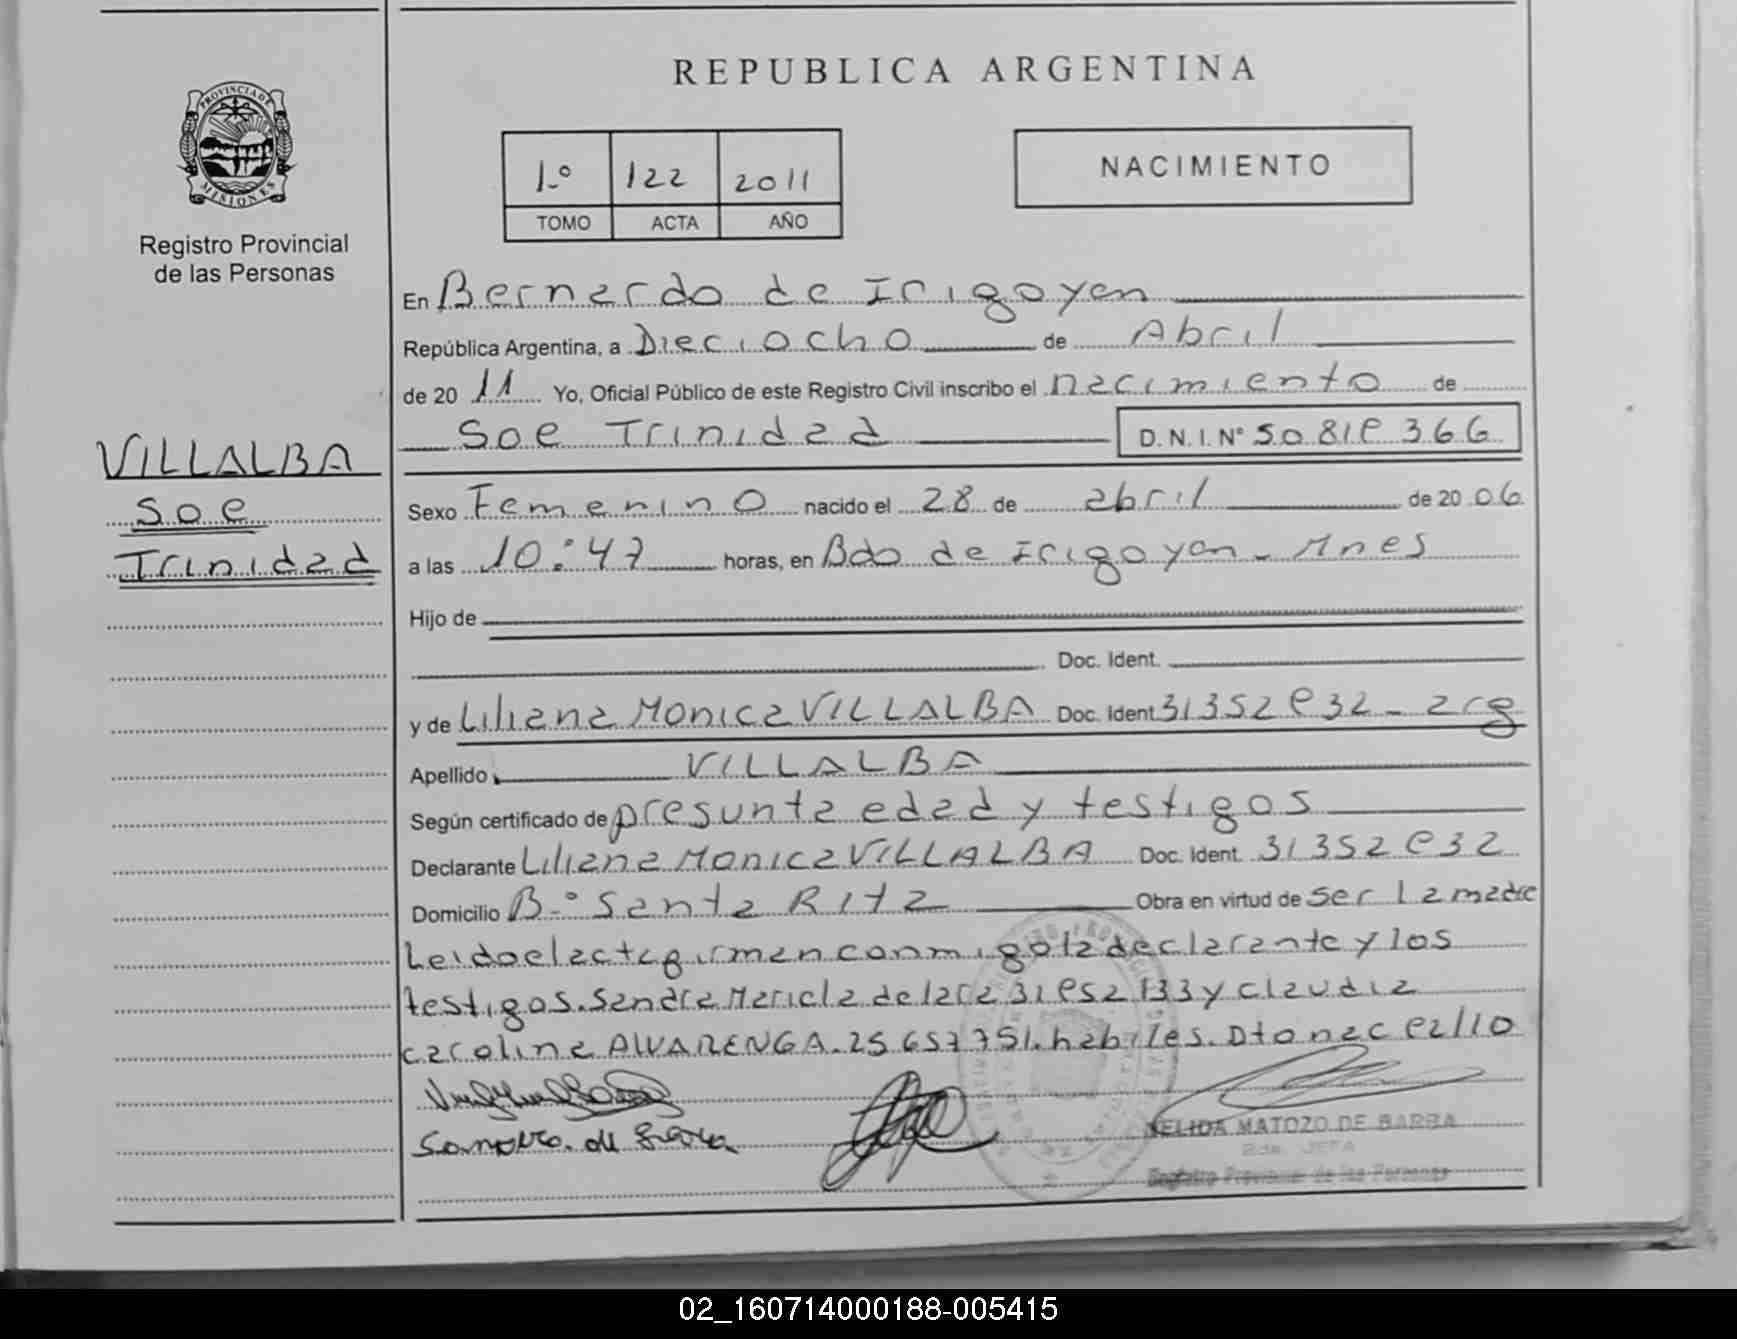 REPUBLICA ARGENTINA
PROVINCIA DE
MISIONES
Registro Provincial
de las Personas
1º 122 2011
TOMO ACTA AÑO
NACIMIENTO
En Bernardo de Irigoyen
República Argentina, a Dieciocho de Abril
de 20 11 Yo, Oficial Público de este Registro Civil inscribo el nacimiento de
Soe Trinidad D.N.I. Nº 50.819.366
VILLALBA
Soe
Trinidad
Sexo Femenino nacido el 28 de abril de 20 06
a las 10:47 horas, en Bdo de Irigoyen - Mnes
Hijo de
Doc. Ident.
y de Liliana Monica VILLALBA Doc. Ident 31352932 - arg
Apellido VILLALBA
Según certificado de presunta edad y testigos
Declarante Liliana Monica VILLALBA Doc. Ident. 31352932
Domicilio Bº Santa Rita Obra en virtud de ser la madre
Leido el acta firman conmigo la declarante y los
testigos. Sandra Mariela de lara y claudia
carolina ALVARENGA. 25.657.751. habiles. Dto nac
NELIDA MATOZO DE BARBA
JEFA
Registro Provincial de las Personas
02_160714000188-005415